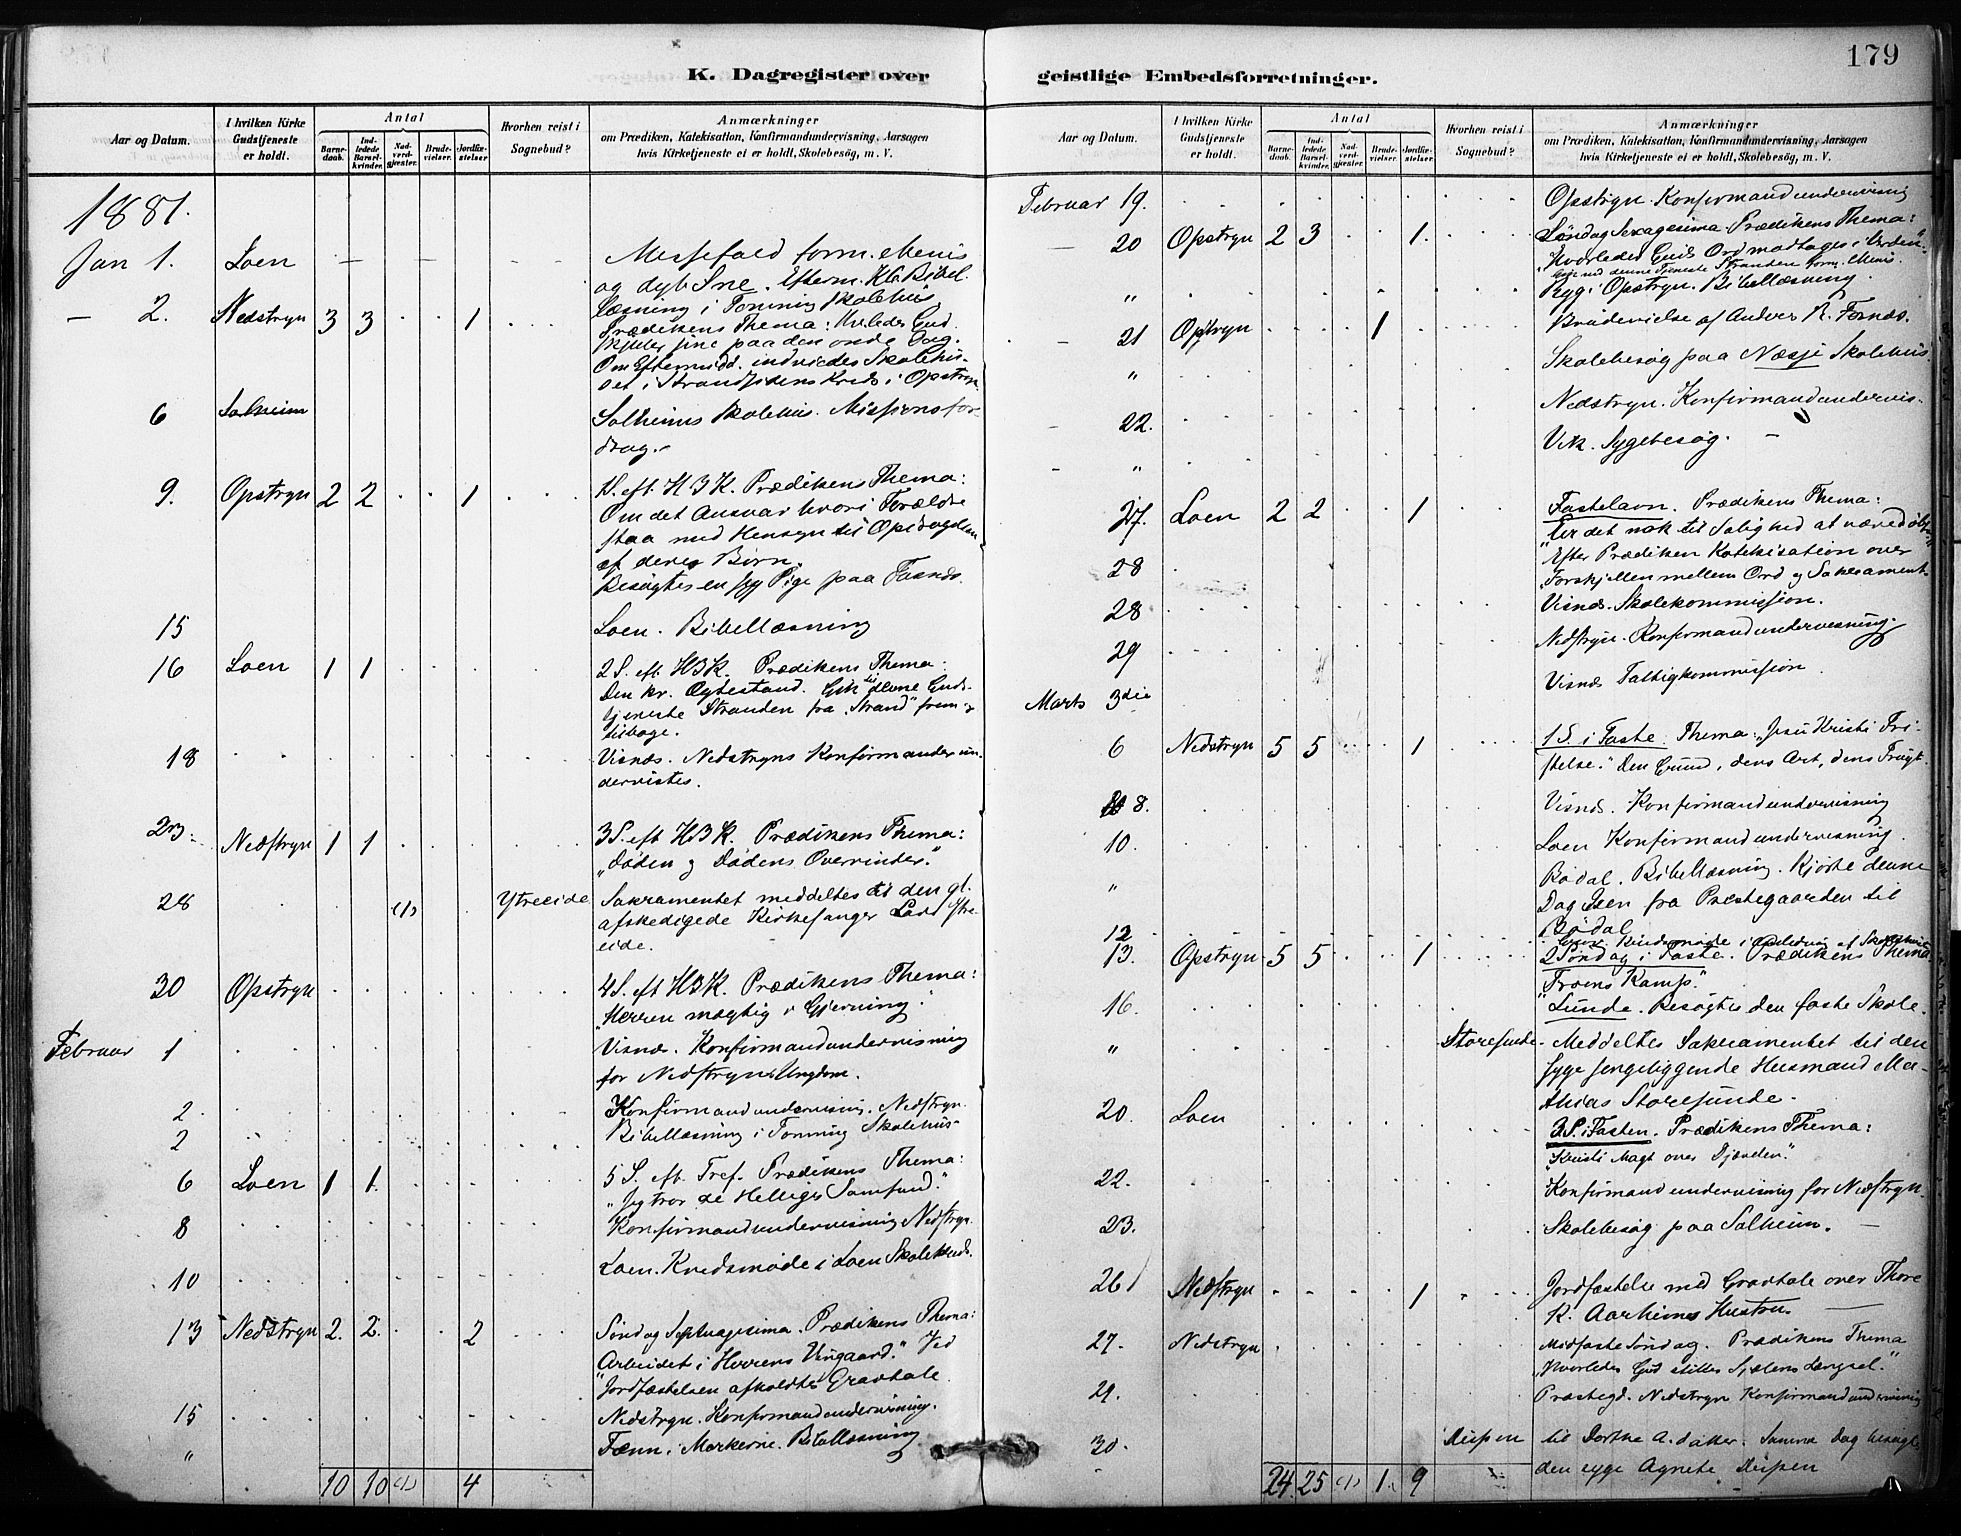 179
K. Dagregister over
geistlige Embedsforretninger.
Aar og Datum.
I hvilken Kirke Gudstjeneste er holdt.
Antal
Barnedaab.
Indledede Barselkvinder.
Nadverdgjester.
Brudevielser.
Jordfæstelser
Hvorhen reist i Sognebud?
Anmærkninger
om Prædiken, Katekisation, Konfirmandundervisning, Aarsagen
hvis Kirketjeneste ei er holdt, Skolebesög, m. V.
1881.
Jan 1. Loen — — Messefald form. Menis
og dyb Sne. Efterm. Bibel
læsning i Tonning Skolehus
— 2. Nedstryn 3 3 . . 1 . . . Prædikens Thema: Gud
skjuler sine paa den onde Dag.
Om Eftermidd. indviedes Skolehus-
set i Strandsidens Kreds i Opstryn
6 Solheim Solheims Skolehus. Missionsfor-
drag.-
9. Opstryn 2 2 . . 1 . . . 1 S. eft. H 3 K. Prædikens Thema:
Om det Ansvar hvori Forældre
staa med Hensyn til Opdragelsen
af deres Børn.
Besøgtes en syg Pige paa
15 Loen. Bibellæsning
16 Loen 1 1 2 S. eft. H3K. Prædikens Thema:
Den kr. Ægtestand. Gik til denne Guds-
tjeneste Stranden fra "Strand" frem og
tilbage.
18 Visnæs. Nedstryns Konfirmander un-
dervistes.
23. Nedstryn 1 1 3 S. eft H3K. Prædikens Thema:
"Døden og Dødens Overvinder."
28 (1) Ytreeide Sakramentet meddeltes til den gl.
afskedigede Kirkesanger Lars Ytre-
eide.
30 Opstryn 4 S. eft H3K. Prædikens Thema:
"Herren mægtig i Gjerning".
Februar 1 Visnæs. Konfirmandundervisning
for Nedstryns Ungdom.
2. Konfirmandundervisning. Nedstryn.
2 Bibellæsning i Tonning Skolehus-
6 Loen 1 1. 5 S. eft. Tref. Prædikens Thema:
"Jeg tror de Helliges Samfund."
8 Konfirmandundervisning Nedstryn.
10 Loen. Kredsmøde i Loen Skolekreds.
13 Nedstryn 2. 2. . . 2 Søndag Septuagesima. Prædikens Thema:
"Arbeidet i Herrens Vingaard." Ved
Jordfæstelsen afholdtes Gravtale
15 Nedstryn. Konfirmandundervisning.
" i Markerne. Bibellæsning
10 10 (1) 4
Februar 19. Opstryn. Konfirmandundervisning
— 20 Opstryn 2 3 . . 1. Søndag Sexagesima Prædikens Thema:
"Hvorledes Guds Ord modtages i Verden".
denne Tjeneste Stranden form. Menis.
" Ryg i Opstryn. Bibellæsning.
- 21 Opstryn 1 Brudevielse af Anders R. Fornæs.
" Skolebesøg paa Næsje Skolehus.
- 22. Nedstryn. Konfirmandundervis-
- " Vik. Sygebesøg. -
27. Loen 2 2 . . 1 Fastelavn. Prædikens Thema:
"Er det nok til Salighed at være døbt"
Efter Prædiken Katekisation over
Forskjellen mellem Ord og Sakrament
28 Visnæs. Skolekommission.
28 Nedstryn. Konfirmandundervisning.
29 Visnæs Fattigkommission
Marts 3die
6 Nedstryn 5 5 . . 1 1 S. i Faste. Thema: "Jesu Kristi Fri-
stelse." Den Grund, dens Art, dens Frugt.
8. Visnæs. Konfirmandundervisning
10. Loen Konfirmandundervisning.
" Bødal. Bibellæsning. Kjørte denne
Dag fra Prestegaarden til
Bødal
12 Kredsmøde i Anledning af
13. Opstryn 5 5 . . 1 2 Søndag i Faste. Prædikens Thema
"Troens Kamp."
16. Lunde. Besøgtes den faste Skole.
" Storesunde- Meddeltes Sakramentet til den
syge sengeliggende Husmand Ma-
thias Storesunde.
20. Loen 3 S. i Fasten. Prædikens Thema:
"Kristi Magt over Djævelen."
22. Konfirmandundervisning for Nedstryn.
23. Skolebesøg paa Solheim. —
26 Nedstryn 1 Jordfæstelse med Gravtale over Thore
K. Aarheims Hustru. —
27. Nedstryn Midfaste Søndag. Prædikens Thema
"Hvorledes Gud stiller Sjælens Længsel."
29. Præstegd. Nedstryn Konfirmandundervisning
30. til Dorthe A. datter. Samme Dag besøgt
den syge Agnete
24. 25 (1) 1. 9